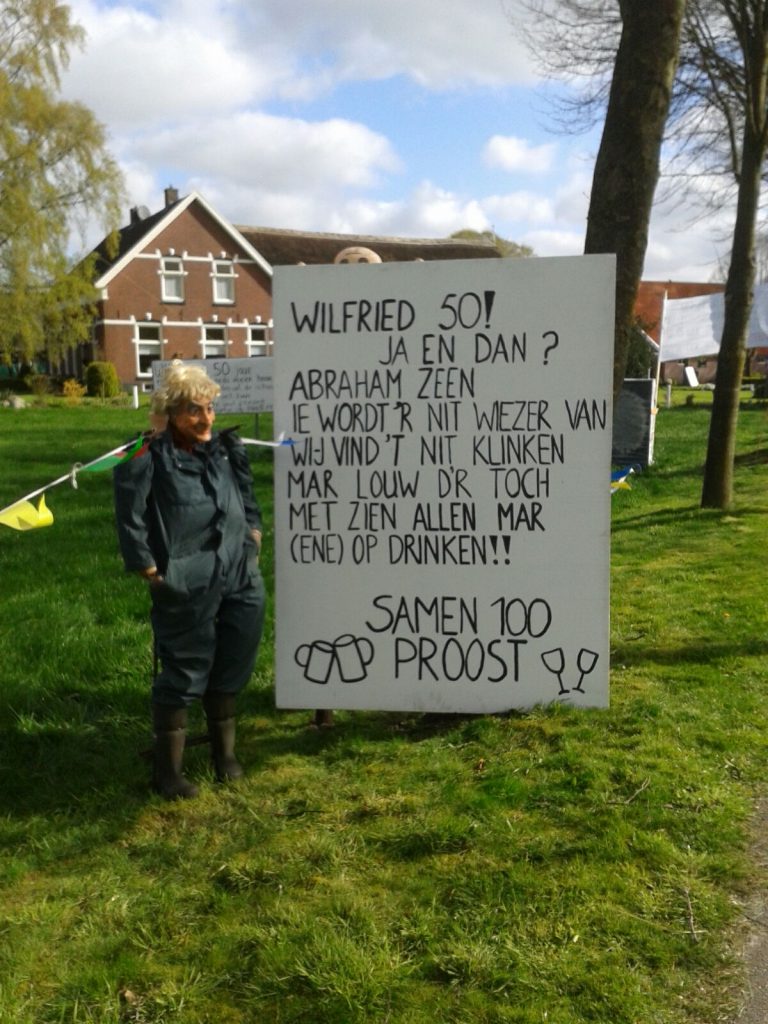 WILFRIED 50!
JA EN DAN?
ABRAHAM ZEEN
IE WORDT'R NIT WIEZER VAN
WIJ VIND'T NIT KLINKEN
MAR LOUW D'R TOCH
MET ZIEN ALLEN MAR
(ENE) OP DRINKEN!!
SAMEN 100
PROOST
50 JAAR